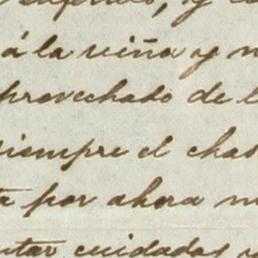 á la viña y n
provechado de l
siempre el chas
ta por ahora n
ntar cuidados y